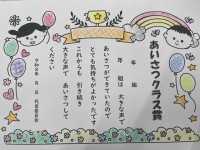 あいさつクラス賞
年　組
年　組は　大きな声で
あいさつができていたので
とても気持ちがよかったです
これからも　引き続き
大きな声で　あいさつして
ください
令和　年　月　日　代表委員会